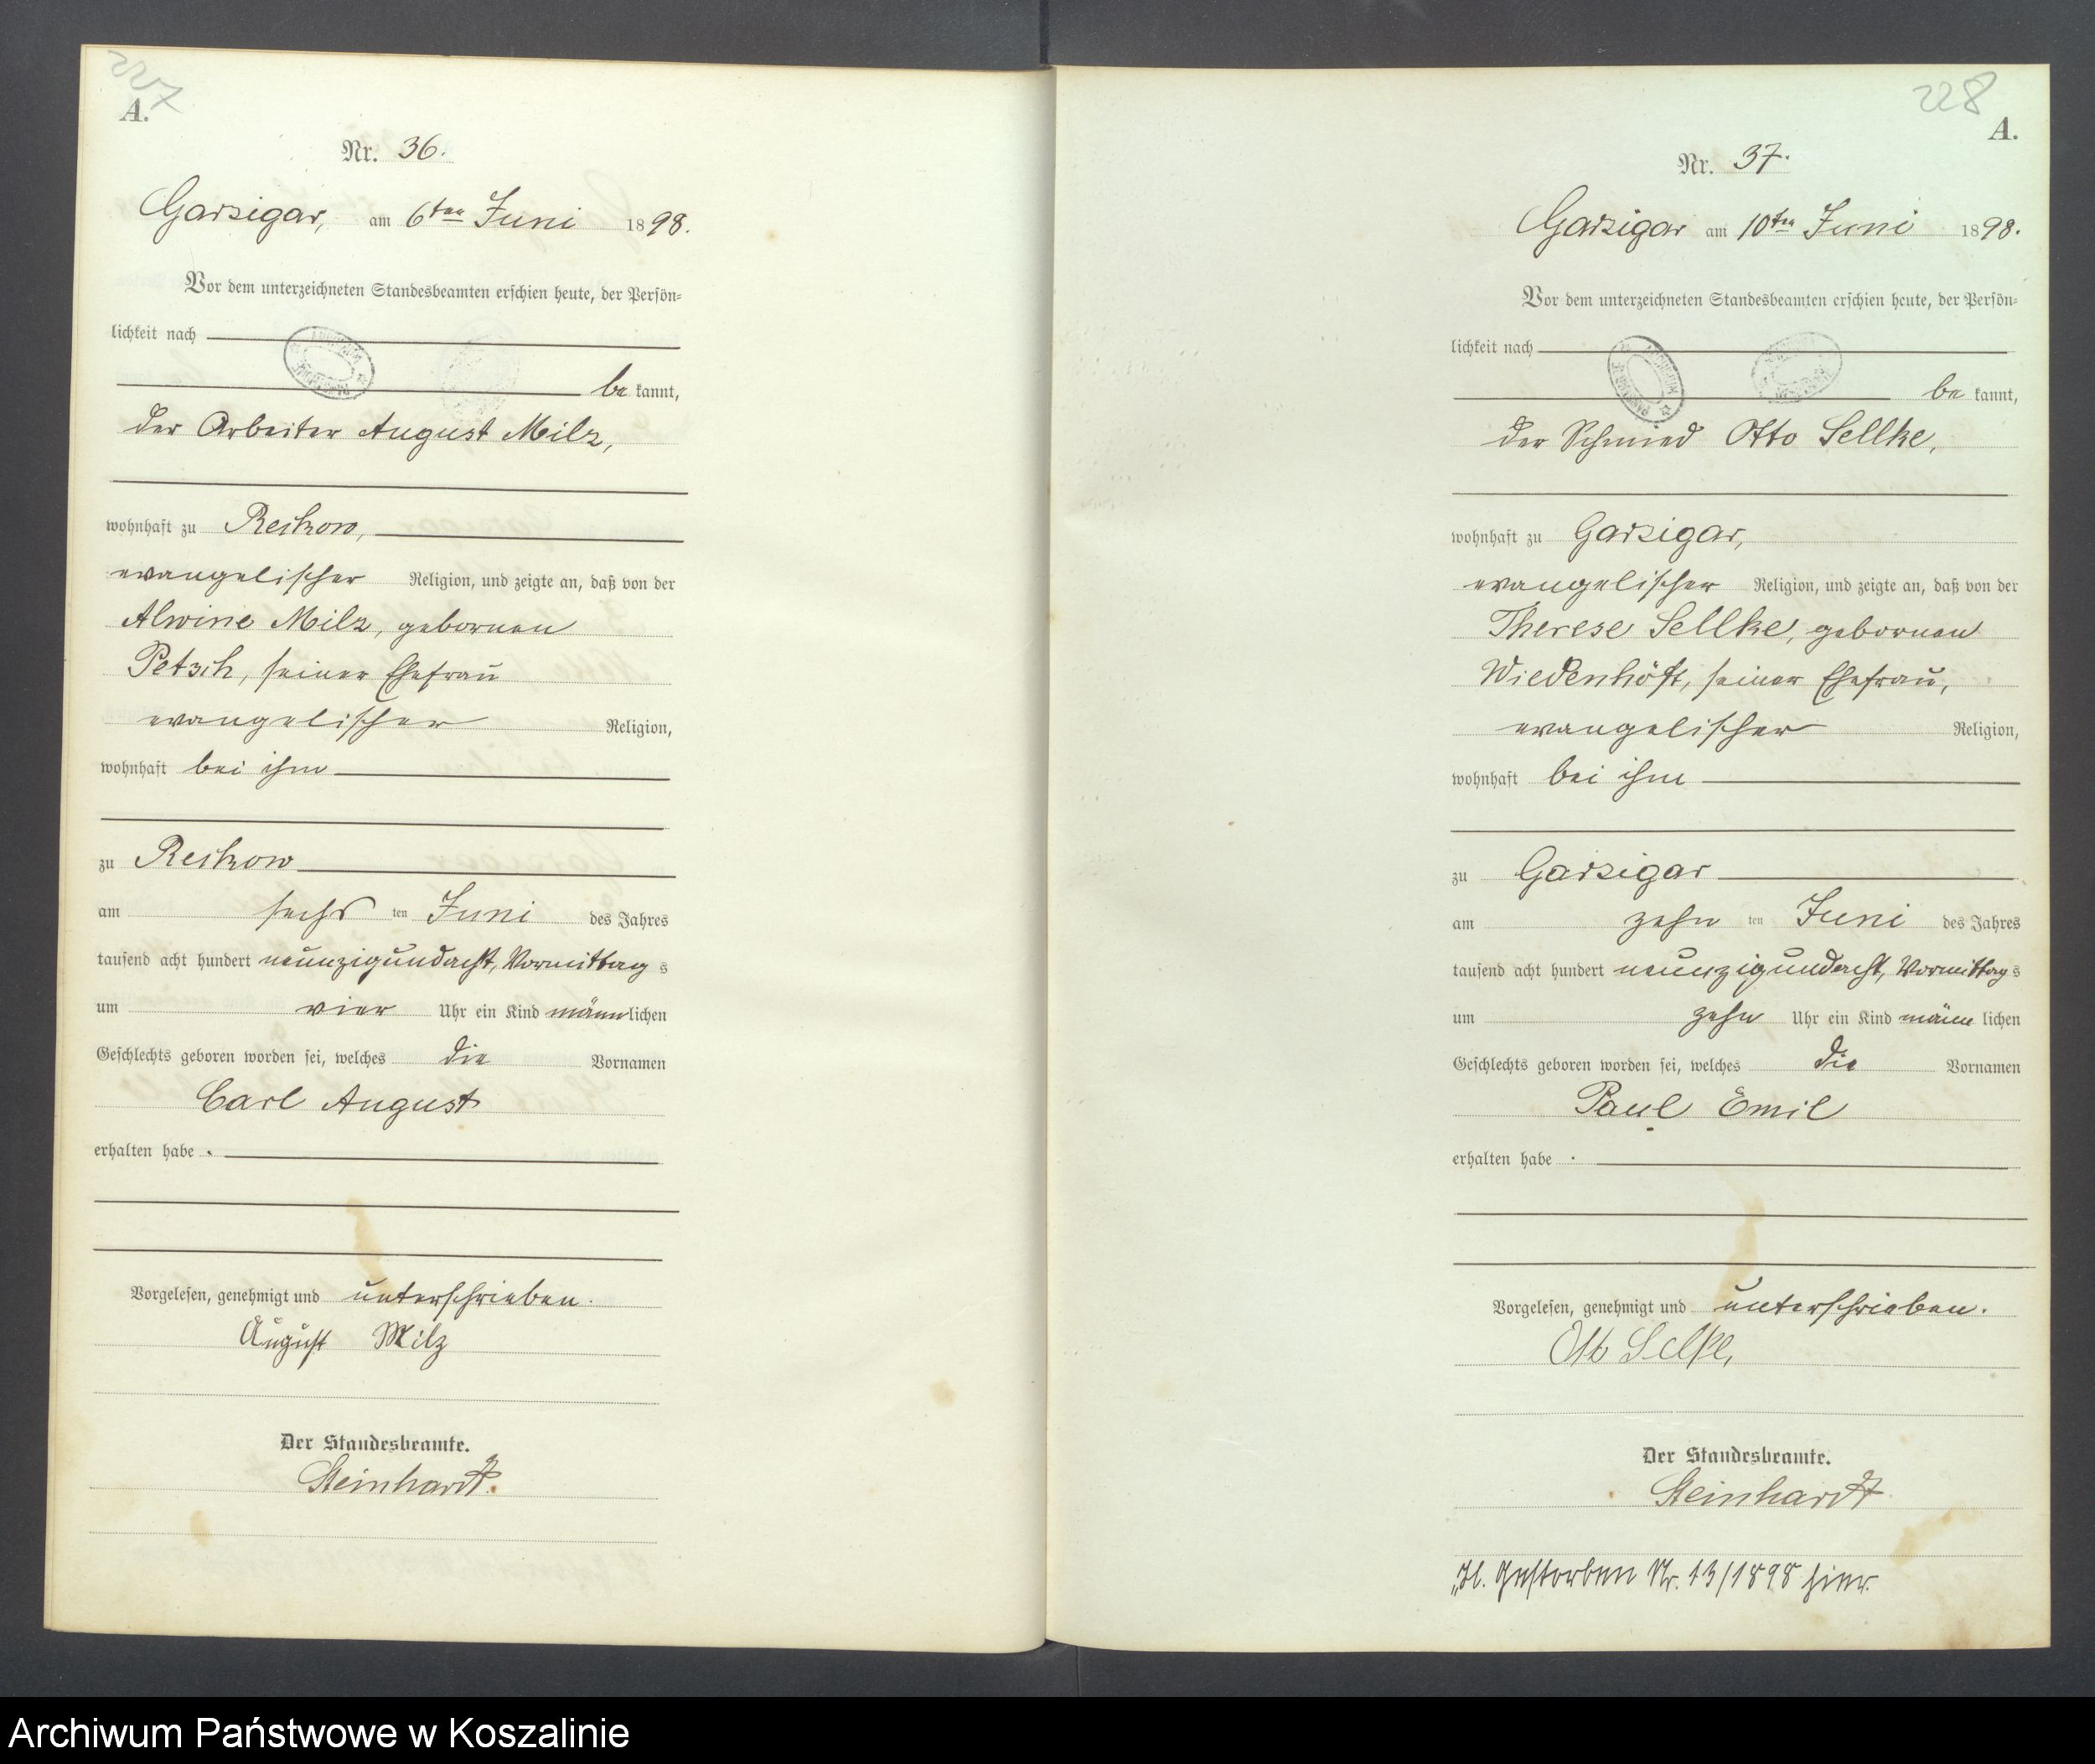 227
A.
Nr. 36.
Garzigar, am 6ten Juni 1898.
Vor dem unterzeichneten Standesbeamten erschien heute, der Persön-
lichkeit nach
be kannt,
der Arbeiter August Milz,
wohnhaft zu Reckow,
evangelischer Religion, und zeigte an, daß von der
Alwine Milz, gebornen
Petsch, seiner Ehefrau
evangelischer Religion,
wohnhaft bei ihm
zu Reckow
am sechs ten Juni des Jahres
tausend acht hundert neunzigundacht, Vormittag s
um vier Uhr ein Kind männlichen
Geschlechts geboren worden sei, welches die Vornamen
Carl August
erhalten habe.
Vorgelesen, genehmigt und unterschrieben.
August Milz
Der Standesbeamte.
Steinhardt.
228
A.
Nr. 37.
Garzigar am 10ten Juni 1898.
Vor dem unterzeichneten Standesbeamten erschien heute, der Persön-
lichkeit nach
be kannt,
der Schmied Otto Sellke,
wohnhaft zu Garzigar,
evangelischer Religion, und zeigte an, daß von der
Therese Sellke, gebornen
Wiedenhöft, seiner Ehefrau,
evangelischer Religion,
wohnhaft bei ihm
zu Garzigar
am zehn ten Juni des Jahres
tausend acht hundert neunzigundacht, Vormittag s
um zehn Uhr ein Kind männ lichen
Geschlechts geboren worden sei, welches die Vornamen
Paul Emil
erhalten habe.
Vorgelesen, genehmigt und unterschrieben.
Otto Selke,
Der Standesbeamte.
Steinhardt
Gestorben Nr. 13/1898 hier.
Archiwum Państwowe w Koszalinie